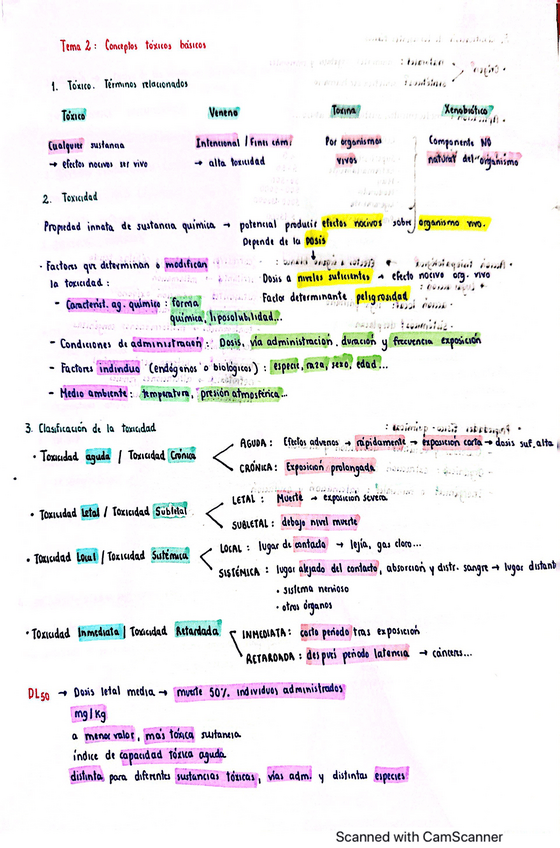 Tema 2: Conceptos tóxicos básicos
1. Tóxico. Términos relacionados
Tóxico Veneno Toxina Xenobiótico
Cualquier sustancia Intencional / Fines crim. Por organismos Componente NO
→ efectos nocivos ser vivo → alta toxicidad vivos natural del organismo
2. Toxicidad
Propiedad innata de sustancia química → potencial producir efectos nocivos sobre organismo vivo.
Depende de la DOSIS
· Factores que determinan o modifican
la toxicidad:
Dosis a niveles suficientes → efecto nocivo org. vivo
Factor determinante peligrosidad
- Caracterist. ag. químico: forma
química, liposolubilidad...
- Condiciones de administración: Dosis, vía administración, duración y frecuencia exposición
- Factores individuo (endógenos o biológicos): especie, raza, sexo, edad...
- Medio ambiente: temperatura, presión atmosférica...
3. Clasificación de la toxicidad
· Toxicidad aguda / Toxicidad Crónica
AGUDA: Efectos adversos → rápidamente → exposición corta → dosis suf. alta
CRÓNICA: Exposición prolongada
· Toxicidad Letal / Toxicidad Subletal
LETAL: Muerte → exposición severa
SUBLETAL: debajo nivel muerte
· Toxicidad Local / Toxicidad Sistémica
LOCAL: lugar de contacto → lejía, gas cloro...
SISTÉMICA: lugar alejado del contacto, absorción y distr. sangre → lugar distant
· sistema nervioso
· otros órganos
· Toxicidad Inmediata / Toxicidad Retardada
INMEDIATA: corto periodo tras exposición
RETARDADA: después periodo latencia → cánceres...
DL50 → Dosis letal media → muerte 50% individuos administrados
mg/kg
a menor valor, más tóxica sustancia
índice de capacidad tóxica aguda
distinta para diferentes sustancias tóxicas, vías adm. y distintas especies
Scanned with CamScanner